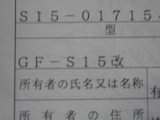 S15-01715
型
GF-S15改
所有者の氏名又は名称
所有者の住所